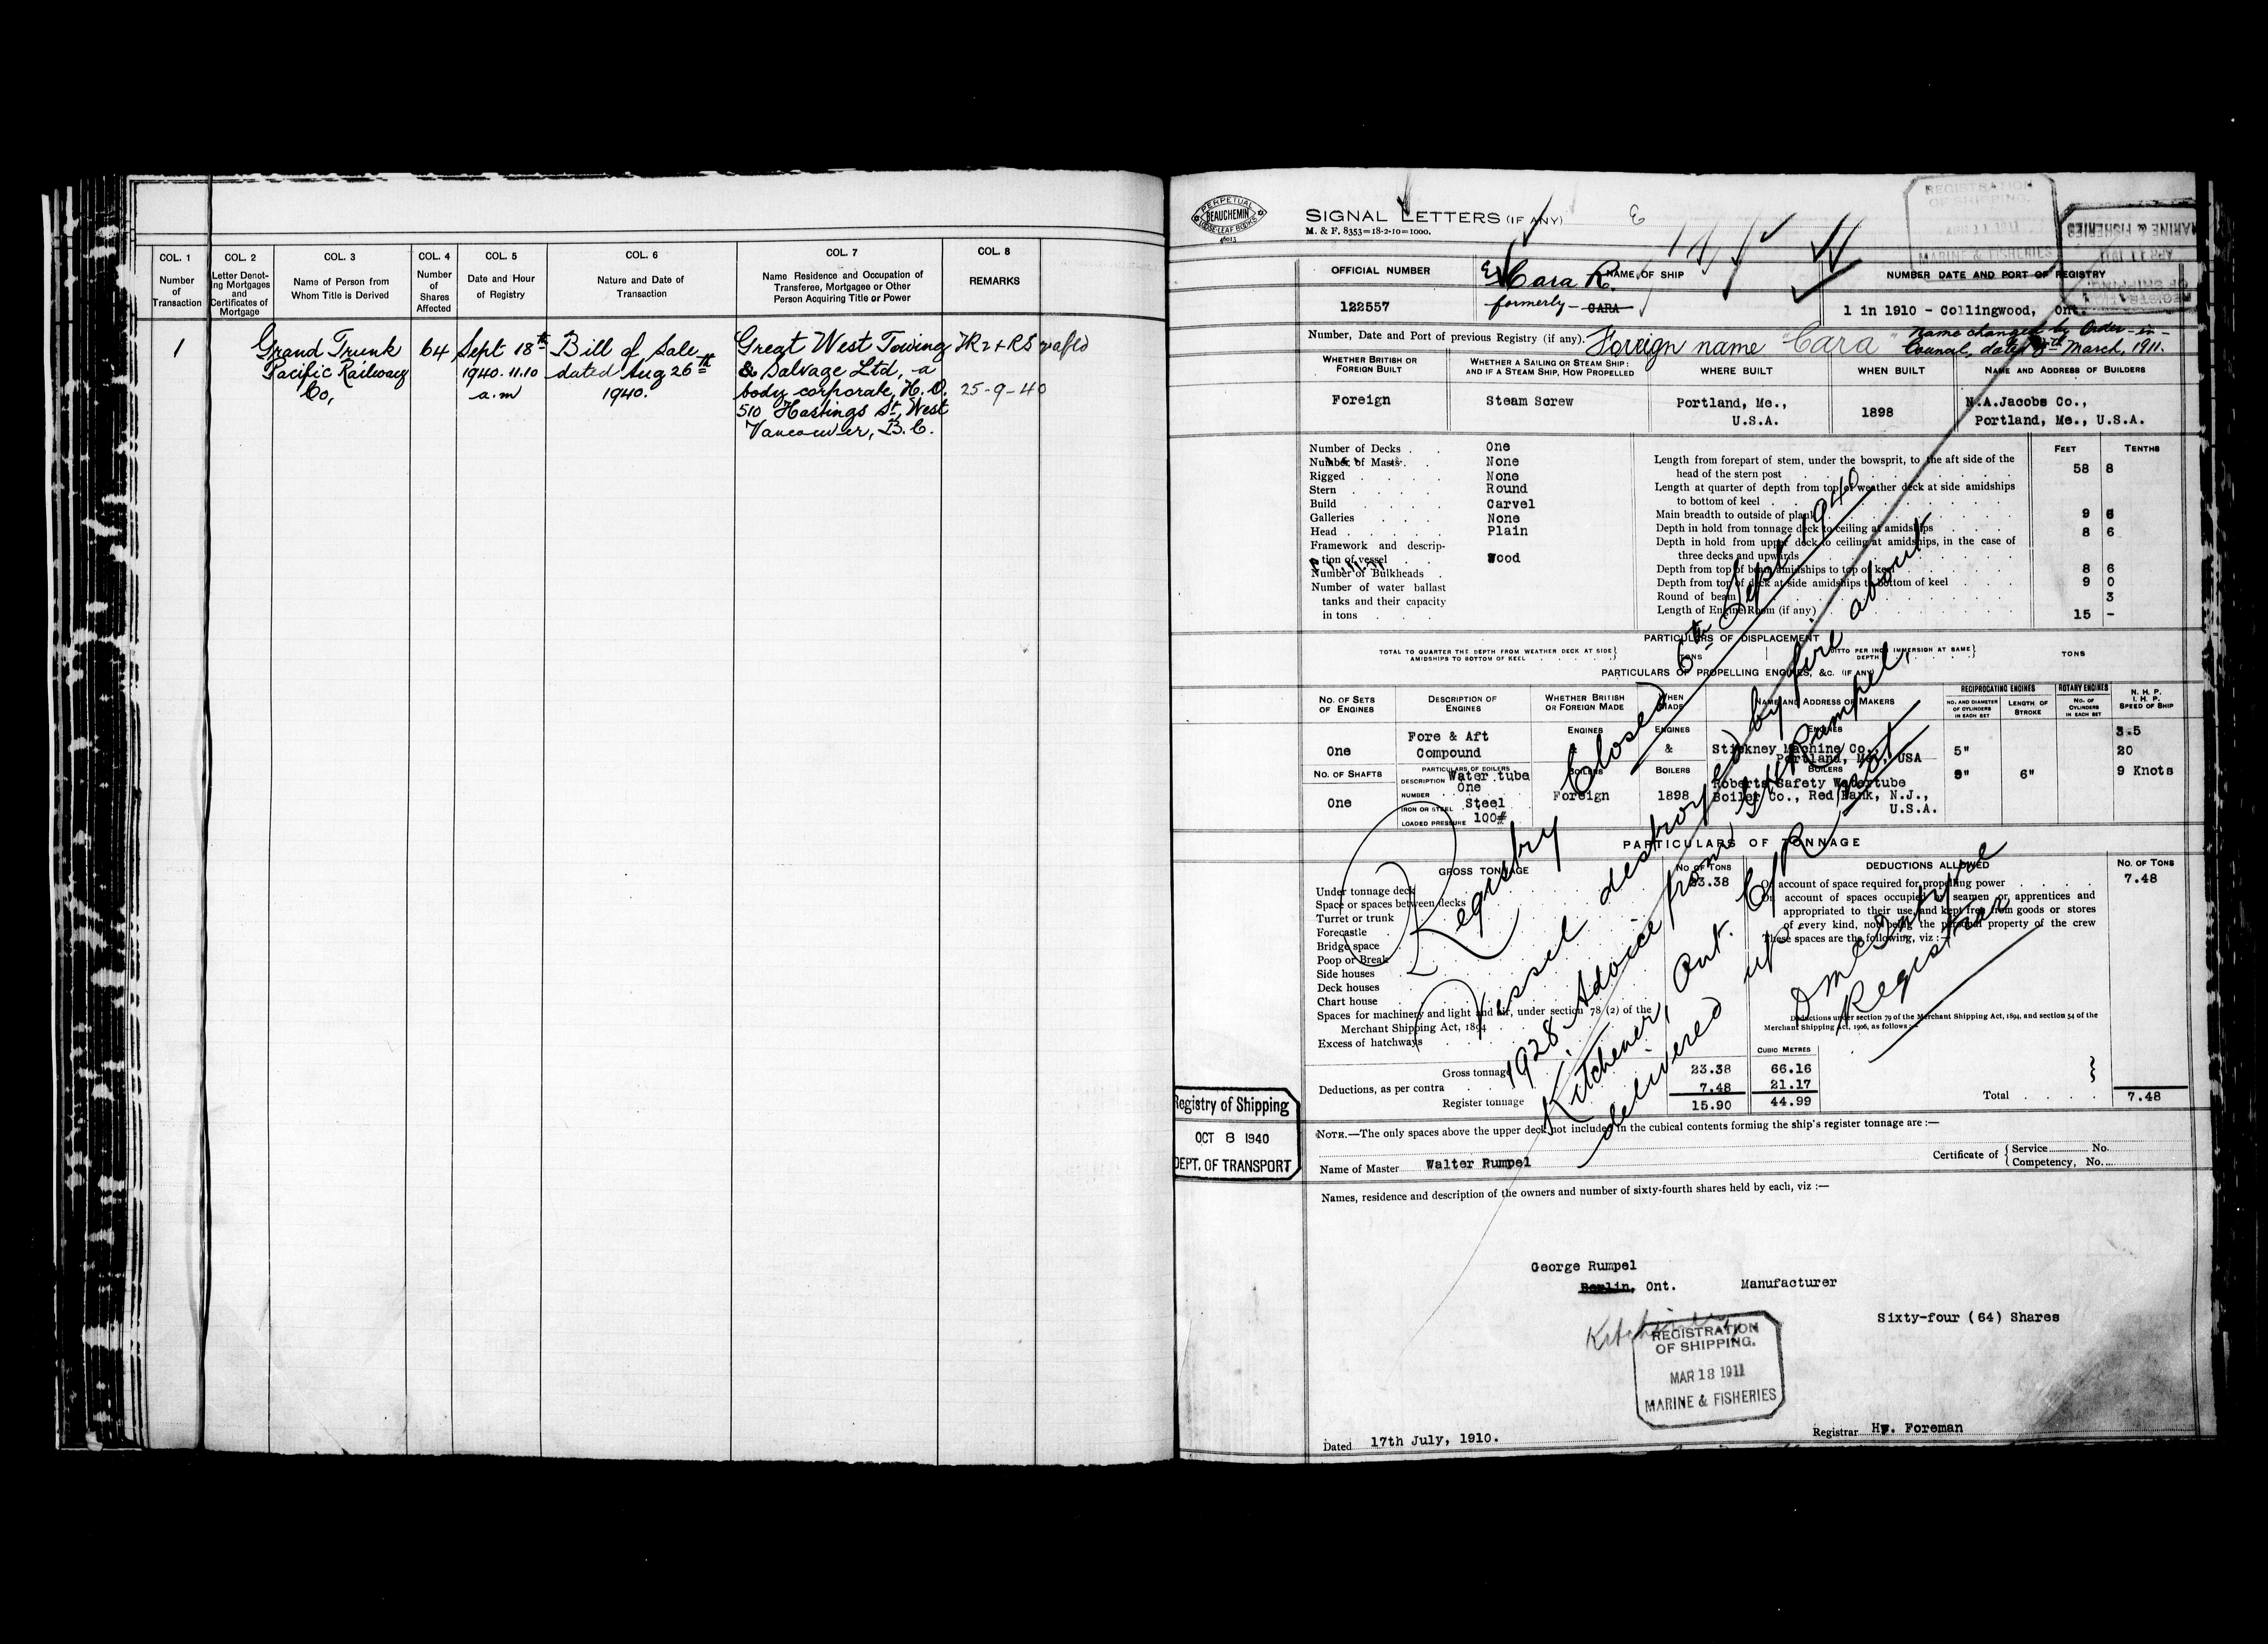 COL. 1 COL. 2 COL. 3 COL. 4 COL. 5 COL. 6 COL. 7 COL. 8
Number of Transaction
Letter Denot-ing Mortgages and Certificates of Mortgage
Name of Person from Whom Title is Derived
Number of Shares Affected
Date and Hour of Registry
Nature and Date of Transaction
Name Residence and Occupation of Transferee, Mortgagee or Other Person Acquiring Title or Power
REMARKS
1 Grand Trunk 64 Sept 18th Bill of Sale Great West Towing
Pacific Railway 1940. 11.10 dated Aug 26th & Salvage Ltd, a
Co, a.m 1940. body corporate, H.O. 25-9-40
510 Hastings St, West
Vancouver, B.C.
PERPETUAL
BEAUCHEMIN
LOOSE-LEAF BOOKS
46013
SIGNAL LETTERS (IF ANY)
M. & F. 8353=18-2-10=1000.
REGISTRATION
OF SHIPPING.
APR 11 1911
MARINE & FISHERIES
OFFICIAL NUMBER NAME OF SHIP NUMBER DATE AND PORT OF REGISTRY
Cara R.
122557 formerly - CARA 1 in 1910 - Collingwood, Ont.
Number, Date and Port of previous Registry (if any). Foreign name "Cara"
Name changed by Order-in-
Council, dated 8th March, 1911.
WHETHER BRITISH OR FOREIGN BUILT
WHETHER A SAILING OR STEAM SHIP: AND IF A STEAM SHIP, HOW PROPELLED
WHERE BUILT
WHEN BUILT
NAME AND ADDRESS OF BUILDERS
Foreign Steam Screw Portland, Me., 1898 N.A.Jacobs Co.,
U.S.A. Portland, Me., U.S.A.
FEET TENTHS
Number of Decks One
Number of Masts None
Rigged None
Stern Round
Build Carvel
Galleries None
Head Plain
Framework and descrip-
tion of vessel Wood
Number of Bulkheads
Number of water ballast
tanks and their capacity
in tons
Length from forepart of stem, under the bowsprit, to the aft side of the
head of the stern post 58 8
Length at quarter of depth from top of weather deck at side amidships
to bottom of keel
Main breadth to outside of plank 9 6
Depth in hold from tonnage deck to ceiling at amidships 8 6
Depth in hold from upper deck to ceiling at amidships, in the case of
three decks and upwards
Depth from top of beam amidships to top of keel 8 6
Depth from top of deck at side amidships to bottom of keel 9 0
Round of beam 3
Length of Engine Room (if any) 15 -
PARTICULARS OF DISPLACEMENT
TOTAL TO QUARTER THE DEPTH FROM WEATHER DECK AT SIDE AMIDSHIPS TO BOTTOM OF KEEL TONS
DITTO PER INCH IMMERSION AT SAME DEPTH TONS
PARTICULARS OF PROPELLING ENGINES, &C. (IF ANY)
NO. OF SETS OF ENGINES
DESCRIPTION OF ENGINES
WHETHER BRITISH OR FOREIGN MADE
WHEN MADE
NAME AND ADDRESS OF MAKERS
RECIPROCATING ENGINES
NO. AND DIAMETER OF CYLINDERS IN EACH SET
LENGTH OF STROKE
ROTARY ENGINES
NO. OF CYLINDERS IN EACH SET
N. H. P.
I. H. P.
SPEED OF SHIP
ENGINES ENGINES ENGINES 3.5
One Fore & Aft Compound & & Stickney Machine Co., 5" 20
Portland, Me., USA
NO. OF SHAFTS PARTICULARS OF BOILERS BOILERS BOILERS BOILERS
DESCRIPTION Water tube 9" 6" 9 Knots
NUMBER One Roberts Safety Watertube
One IRON OR STEEL Steel Foreign 1898 Boiler Co., Red Bank, N.J.,
LOADED PRESSURE 100# U.S.A.
PARTICULARS OF TONNAGE
GROSS TONNAGE NO. OF TONS DEDUCTIONS ALLOWED NO. OF TONS
Under tonnage deck 23.38
Space or spaces between decks
Turret or trunk
Forecastle
Bridge space
Poop or Break
Side houses
Deck houses
Chart house
Spaces for machinery and light and air, under section 78 (2) of the
Merchant Shipping Act, 1894
Excess of hatchways
On account of space required for propelling power 7.48
On account of spaces occupied by seamen or apprentices and
appropriated to their use, and kept free from goods or stores
of every kind, not being the personal property of the crew
These spaces are the following, viz :—
Deductions under section 79 of the Merchant Shipping Act, 1894, and section 54 of the
Merchant Shipping Act, 1906, as follows :—
CUBIC METRES
Gross tonnage 23.38 66.16
Deductions, as per contra 7.48 21.17
Register tonnage 15.90 44.99 Total 7.48
Registry Closed 6th Sept 1940
Vessel destroyed by fire about
1928. Advice from Rumpel,
Kitchener, Ont. C/R not
delivered up.
D McIntyre
Registrar
Registry of Shipping
OCT 8 1940
DEPT. OF TRANSPORT
NOTE.—The only spaces above the upper deck not included in the cubical contents forming the ship's register tonnage are :—
Name of Master Walter Rumpel Certificate of { Service No.
Competency, No.
Names, residence and description of the owners and number of sixty-fourth shares held by each, viz :—
George Rumpel
Berlin, Ont. Manufacturer
Sixty-four (64) Shares
Kitchener
REGISTRATION
OF SHIPPING.
MAR 13 1911
MARINE & FISHERIES
Dated 17th July, 1910. Registrar Hy. Foreman